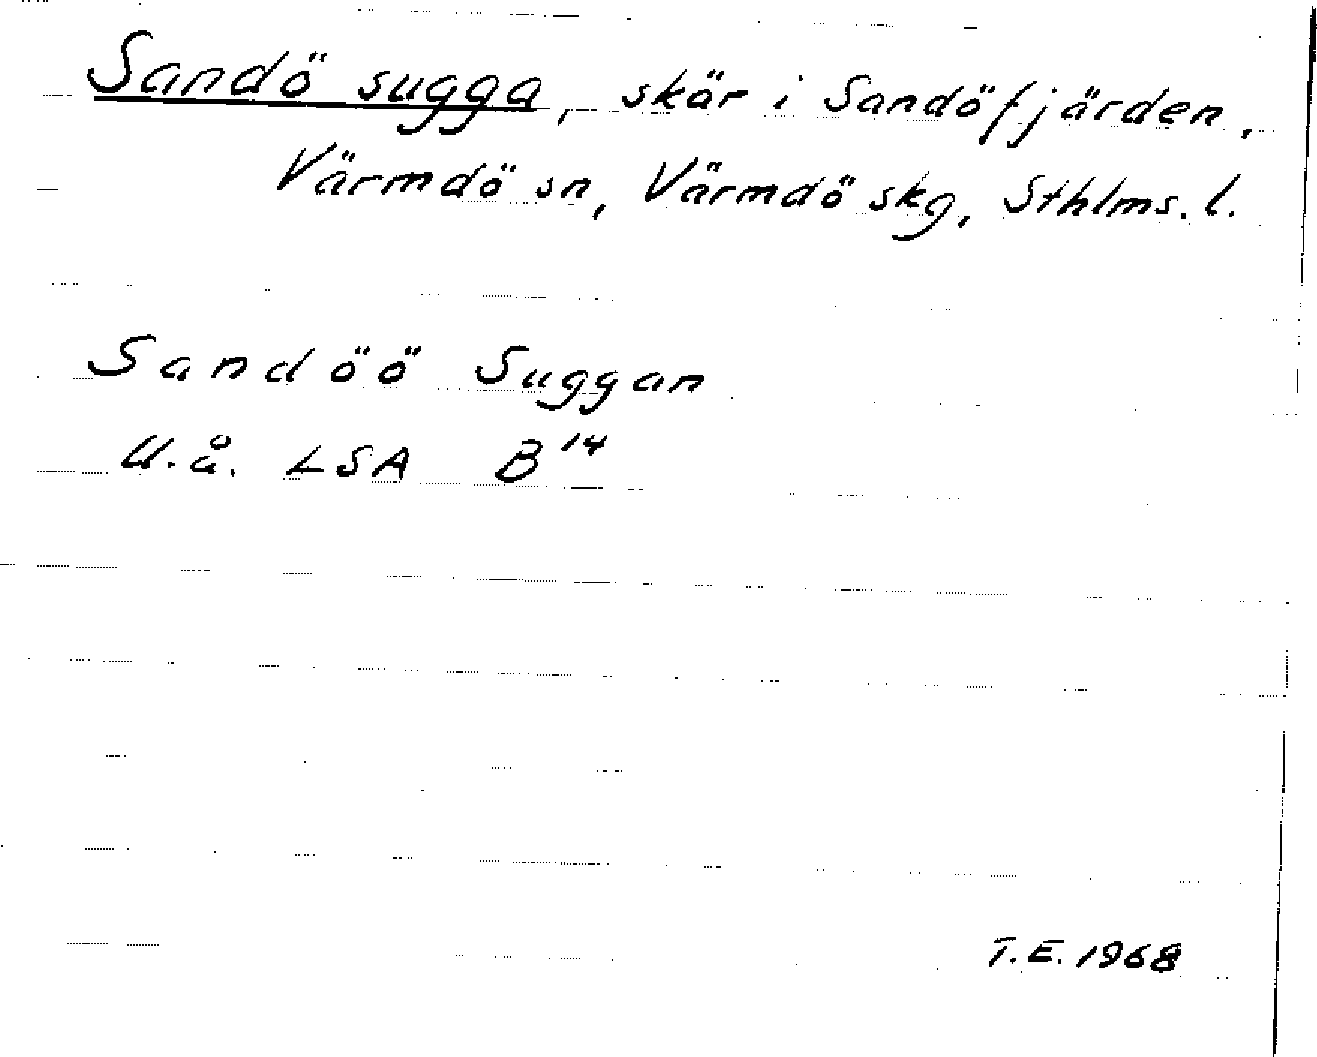 Sandö sugga, skär i Sandöfjärden,
Värmdö sn, Värmdö skg, Sthlms. l.
Sandöö Suggan
U.å. LSA B 14
T.E. 1968